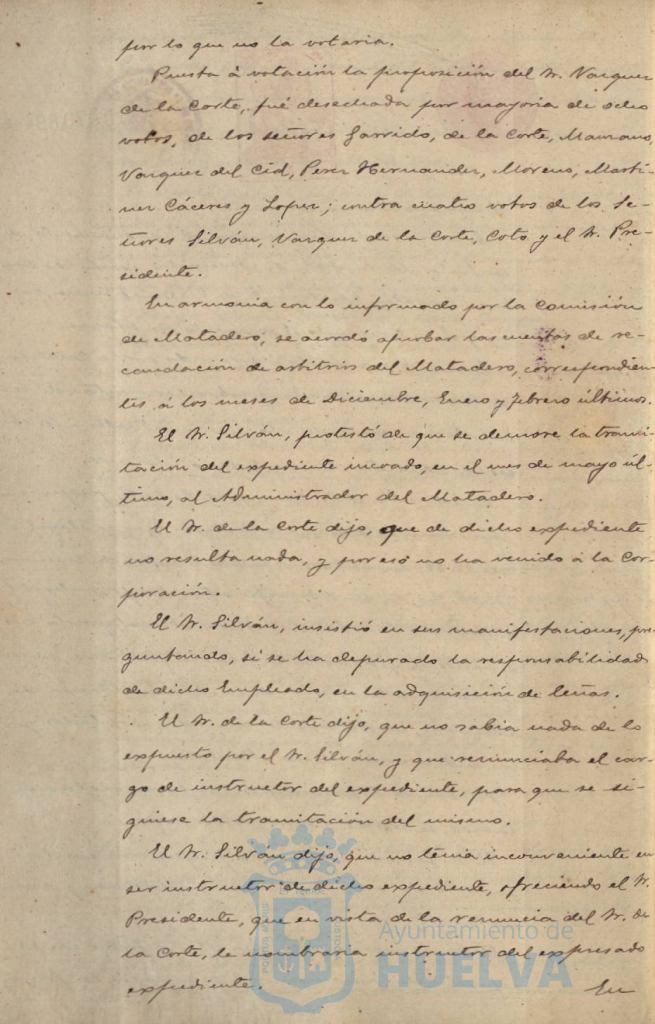 por lo que no la votaria.
Puesta á votación la proposición del Sr. Vazquez
de la Corte, fué desechada por mayoria de ocho
votos, de los señores Garrido, de la Corte, Manzano,
Vazquez del Cid, Perez Hernandez, Moreno, Marti-
nez Cáceres y Lopez; contra cuatro votos de los Se-
ñores Silván, Vazquez de la Corte, Coto y el Sr. Pre-
sidente.
En armonia con lo informado por la Comisión
de Matadero, se acordó aprobar las cuentas de re-
caudación de arbitrios del Matadero, correspondien-
tes á los meses de Diciembre, Enero y Febrero últimos.
El Sr. Silván, protestó de que se demore la trami-
tación del expediente incoado, en el mes de mayo úl-
timo, al Administrador del Matadero.
El Sr. de la Corte dijo, que de dicho expediente
no resulta nada, y por eso no ha venido á la Cor-
poración.
El Sr. Silván, insistió en sus manifestaciones, pre-
guntando, si se ha depurado la responsabilidad
de dicho Empleado, en la adquisición de leñas.
El Sr. de la Corte dijo, que no sabia nada de lo
expuesto por el Sr. Silván, y que renunciaba el car-
go de instructor del expediente, para que se si-
guiese la tramitación del mismo.
El Sr. Silván dijo, que no tenia inconveniente en
ser instructor de dicho expediente, ofreciendo el Sr.
Presidente, que en vista de la renuncia del Sr. de
la Corte, le nombraria instructor del expresado
expediente. En
Ayuntamiento de
HUELVA